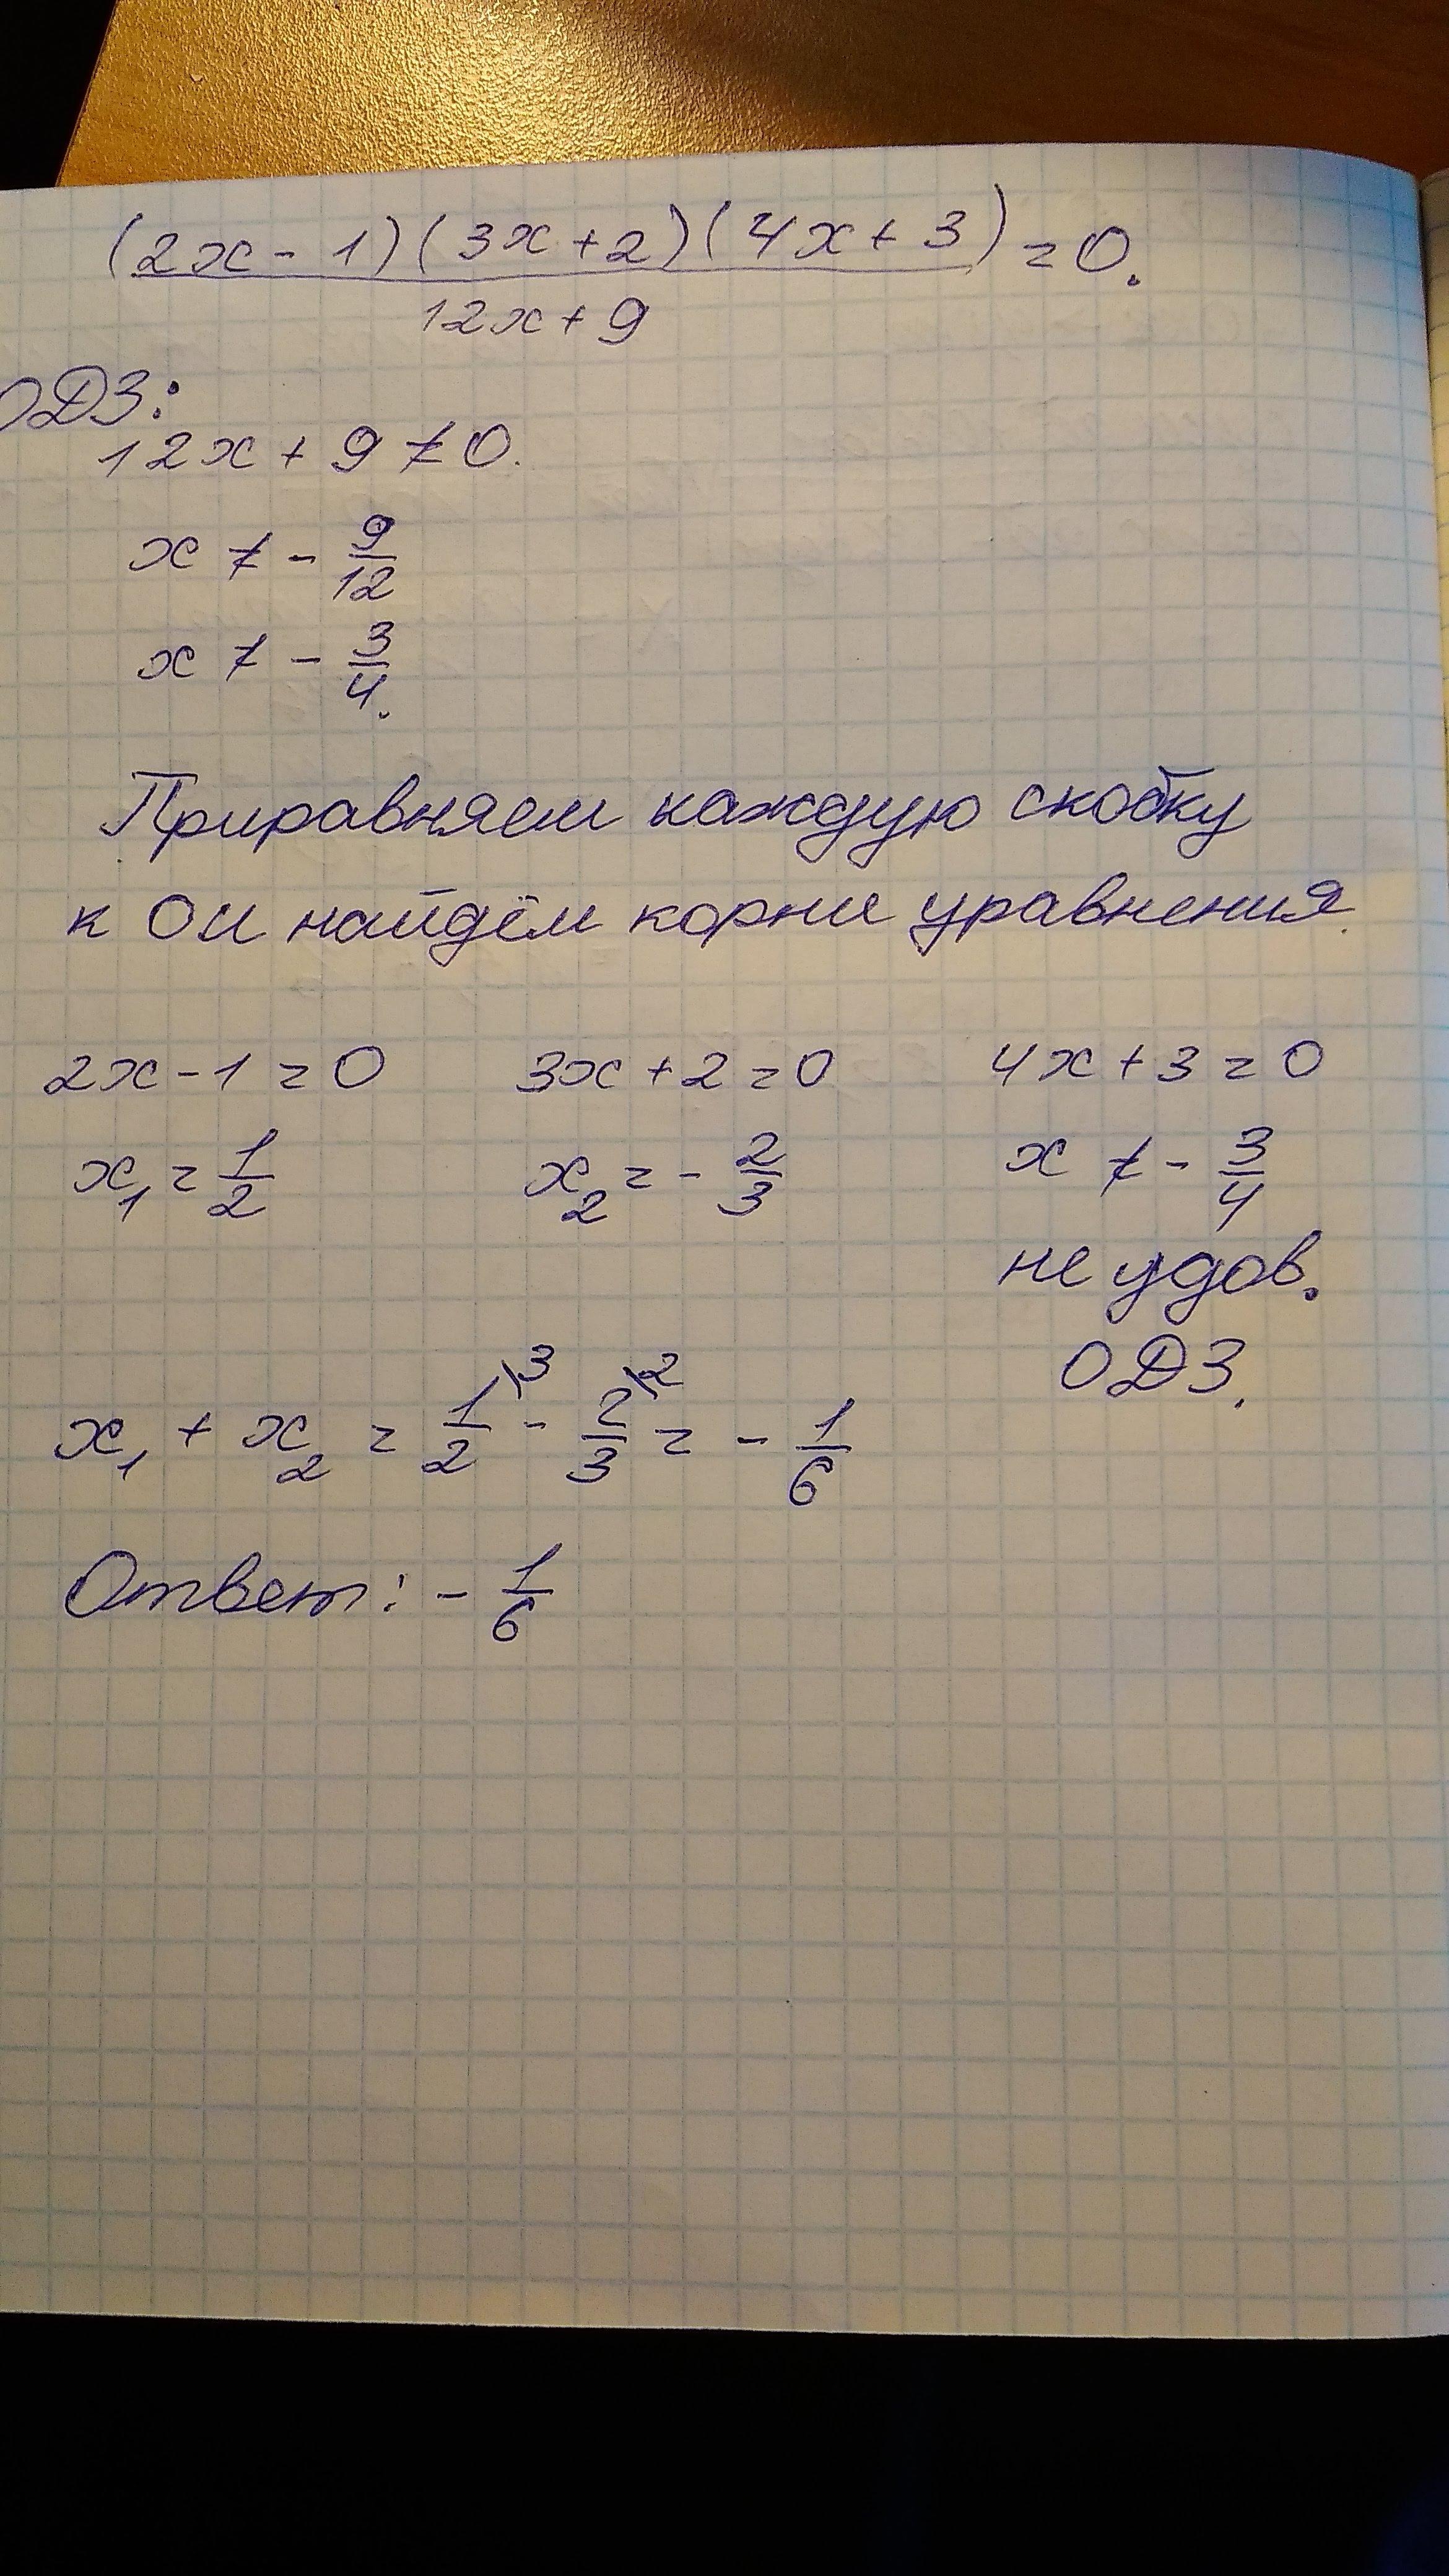 (2x - 1)(3x + 2)(4x + 3) = 0.
12x + 9
ОДЗ:
12x + 9 ≠ 0.
x ≠ - 9/12
x ≠ - 3/4.
Приравняем каждую скобку
к 0 и найдём корни уравнения.
2x - 1 = 0 3x + 2 = 0 4x + 3 = 0
x₁ = 1/2 x₂ = - 2/3 x ≠ - 3/4
не удов.
ОДЗ.
x₁ + x₂ = 1/2 \3 - 2/3 \2 = - 1/6
Ответ: - 1/6